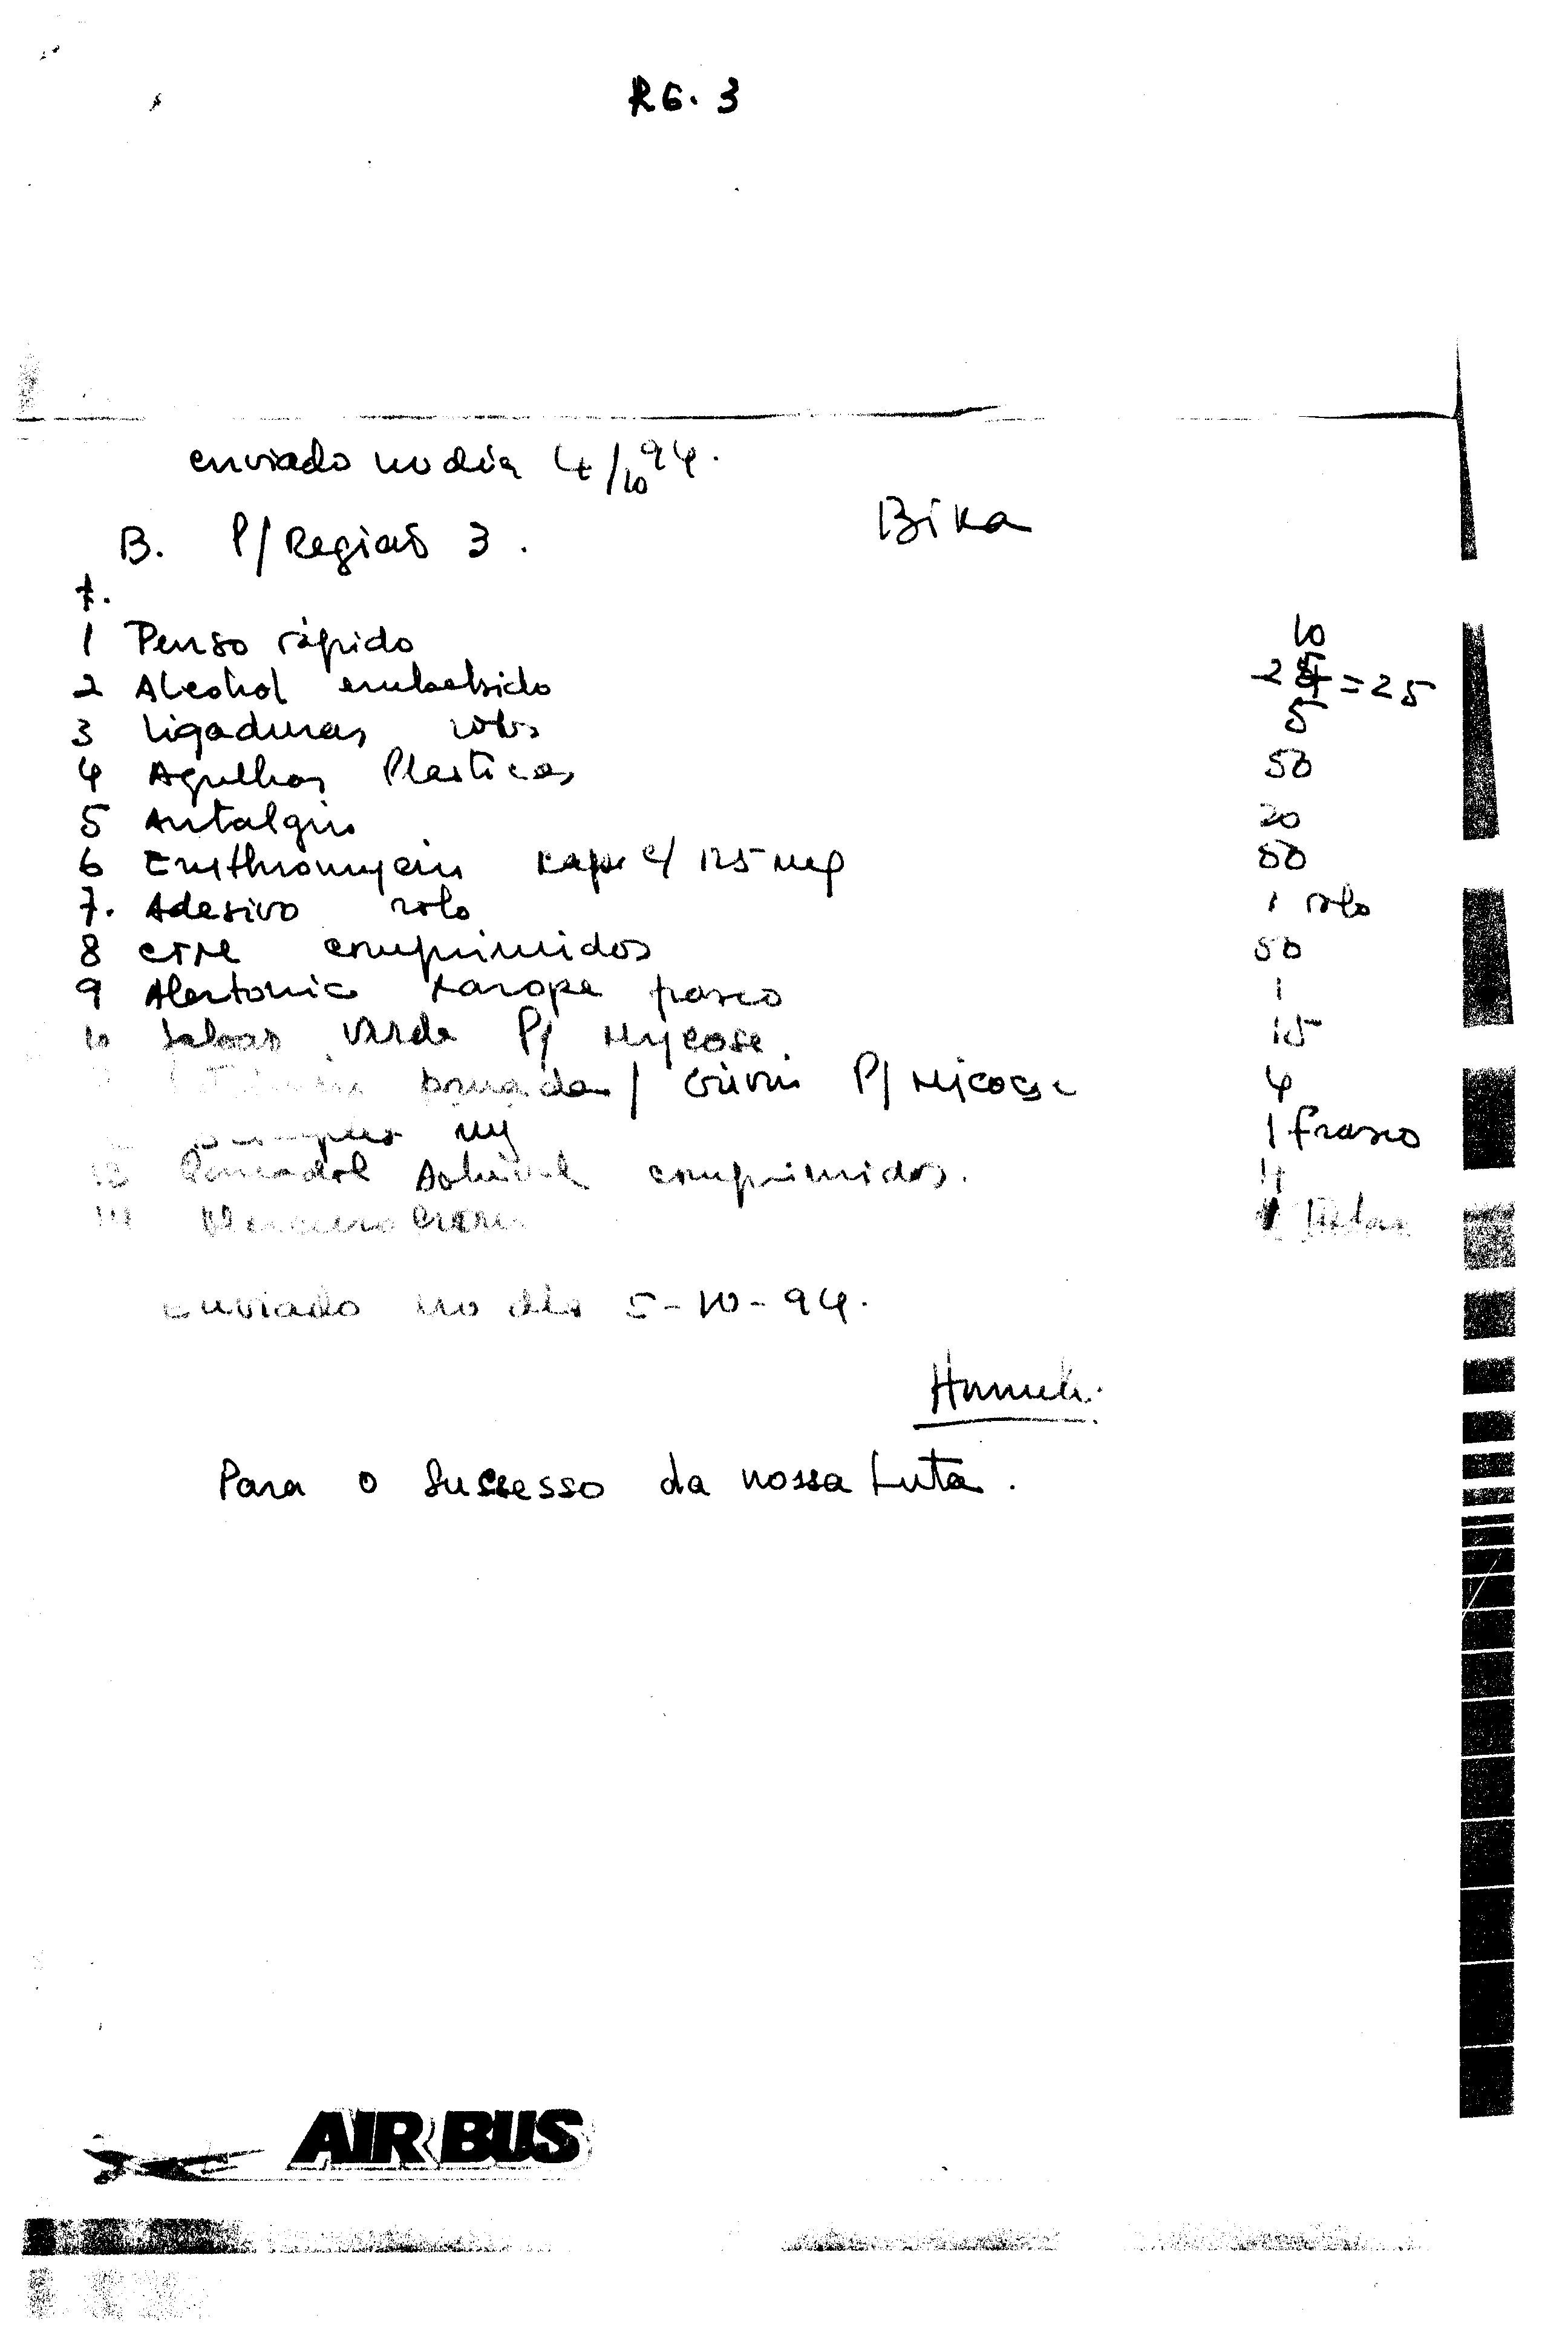 RG. 3
enviado no dia 4/10 94.
B. P/Região 3. Bika
7.
1 Penso rápido 10
2 Alcohol embebido = 25
3 ligaduras rolos 5
4 Agulhas Plasticas 50
5 Antalgin 20
6 Erythromycin c/ 125 mg 50
7. Adesivo rolo 1 rolo
8 CTM comprimidos 50
9 Alertonic xarope frasco 1
10 Sabao verde P/ Mycose. 15
Pomadas / P/ Micose 4
1 frasco
13 comprimidos. 4
14
enviado no dia 5-10-94.
Para o Sucesso da nossa Luta.
AIRBUS